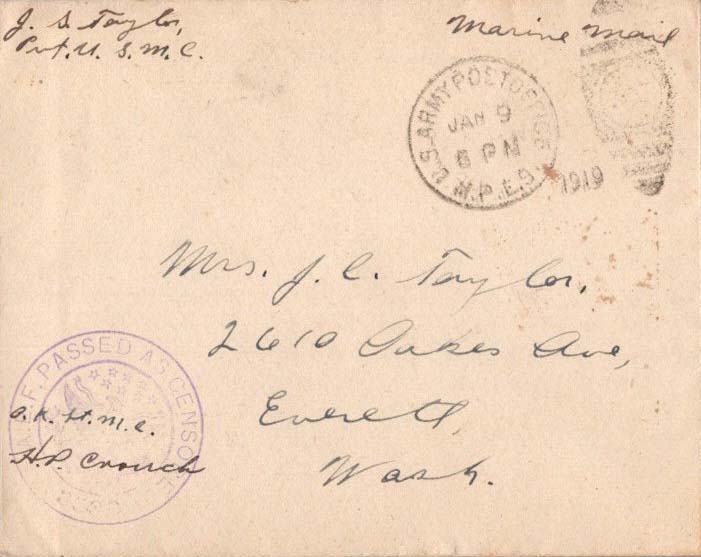 J. S. Taylor,
Pvt. U. S. M. C.
Marine Mail
U.S. ARMY POST OFFICE
JAN 9
PM
M.P.E.S
1919
Mrs. J. C. Taylor,
2610 Oakes Ave,
Everett,
Wash.
A.E.F. PASSED AS CENSORED
O.K. Lt. M.C.
H.P. Crouch